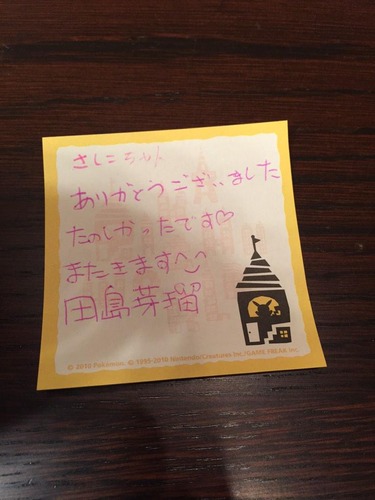 さしこちゃん
ありがとうございました
たのしかったです♡
またきます^^
田島芽瑠
© 2010 Pokémon. © 1995-2010 Nintendo/Creatures Inc./GAME FREAK inc.